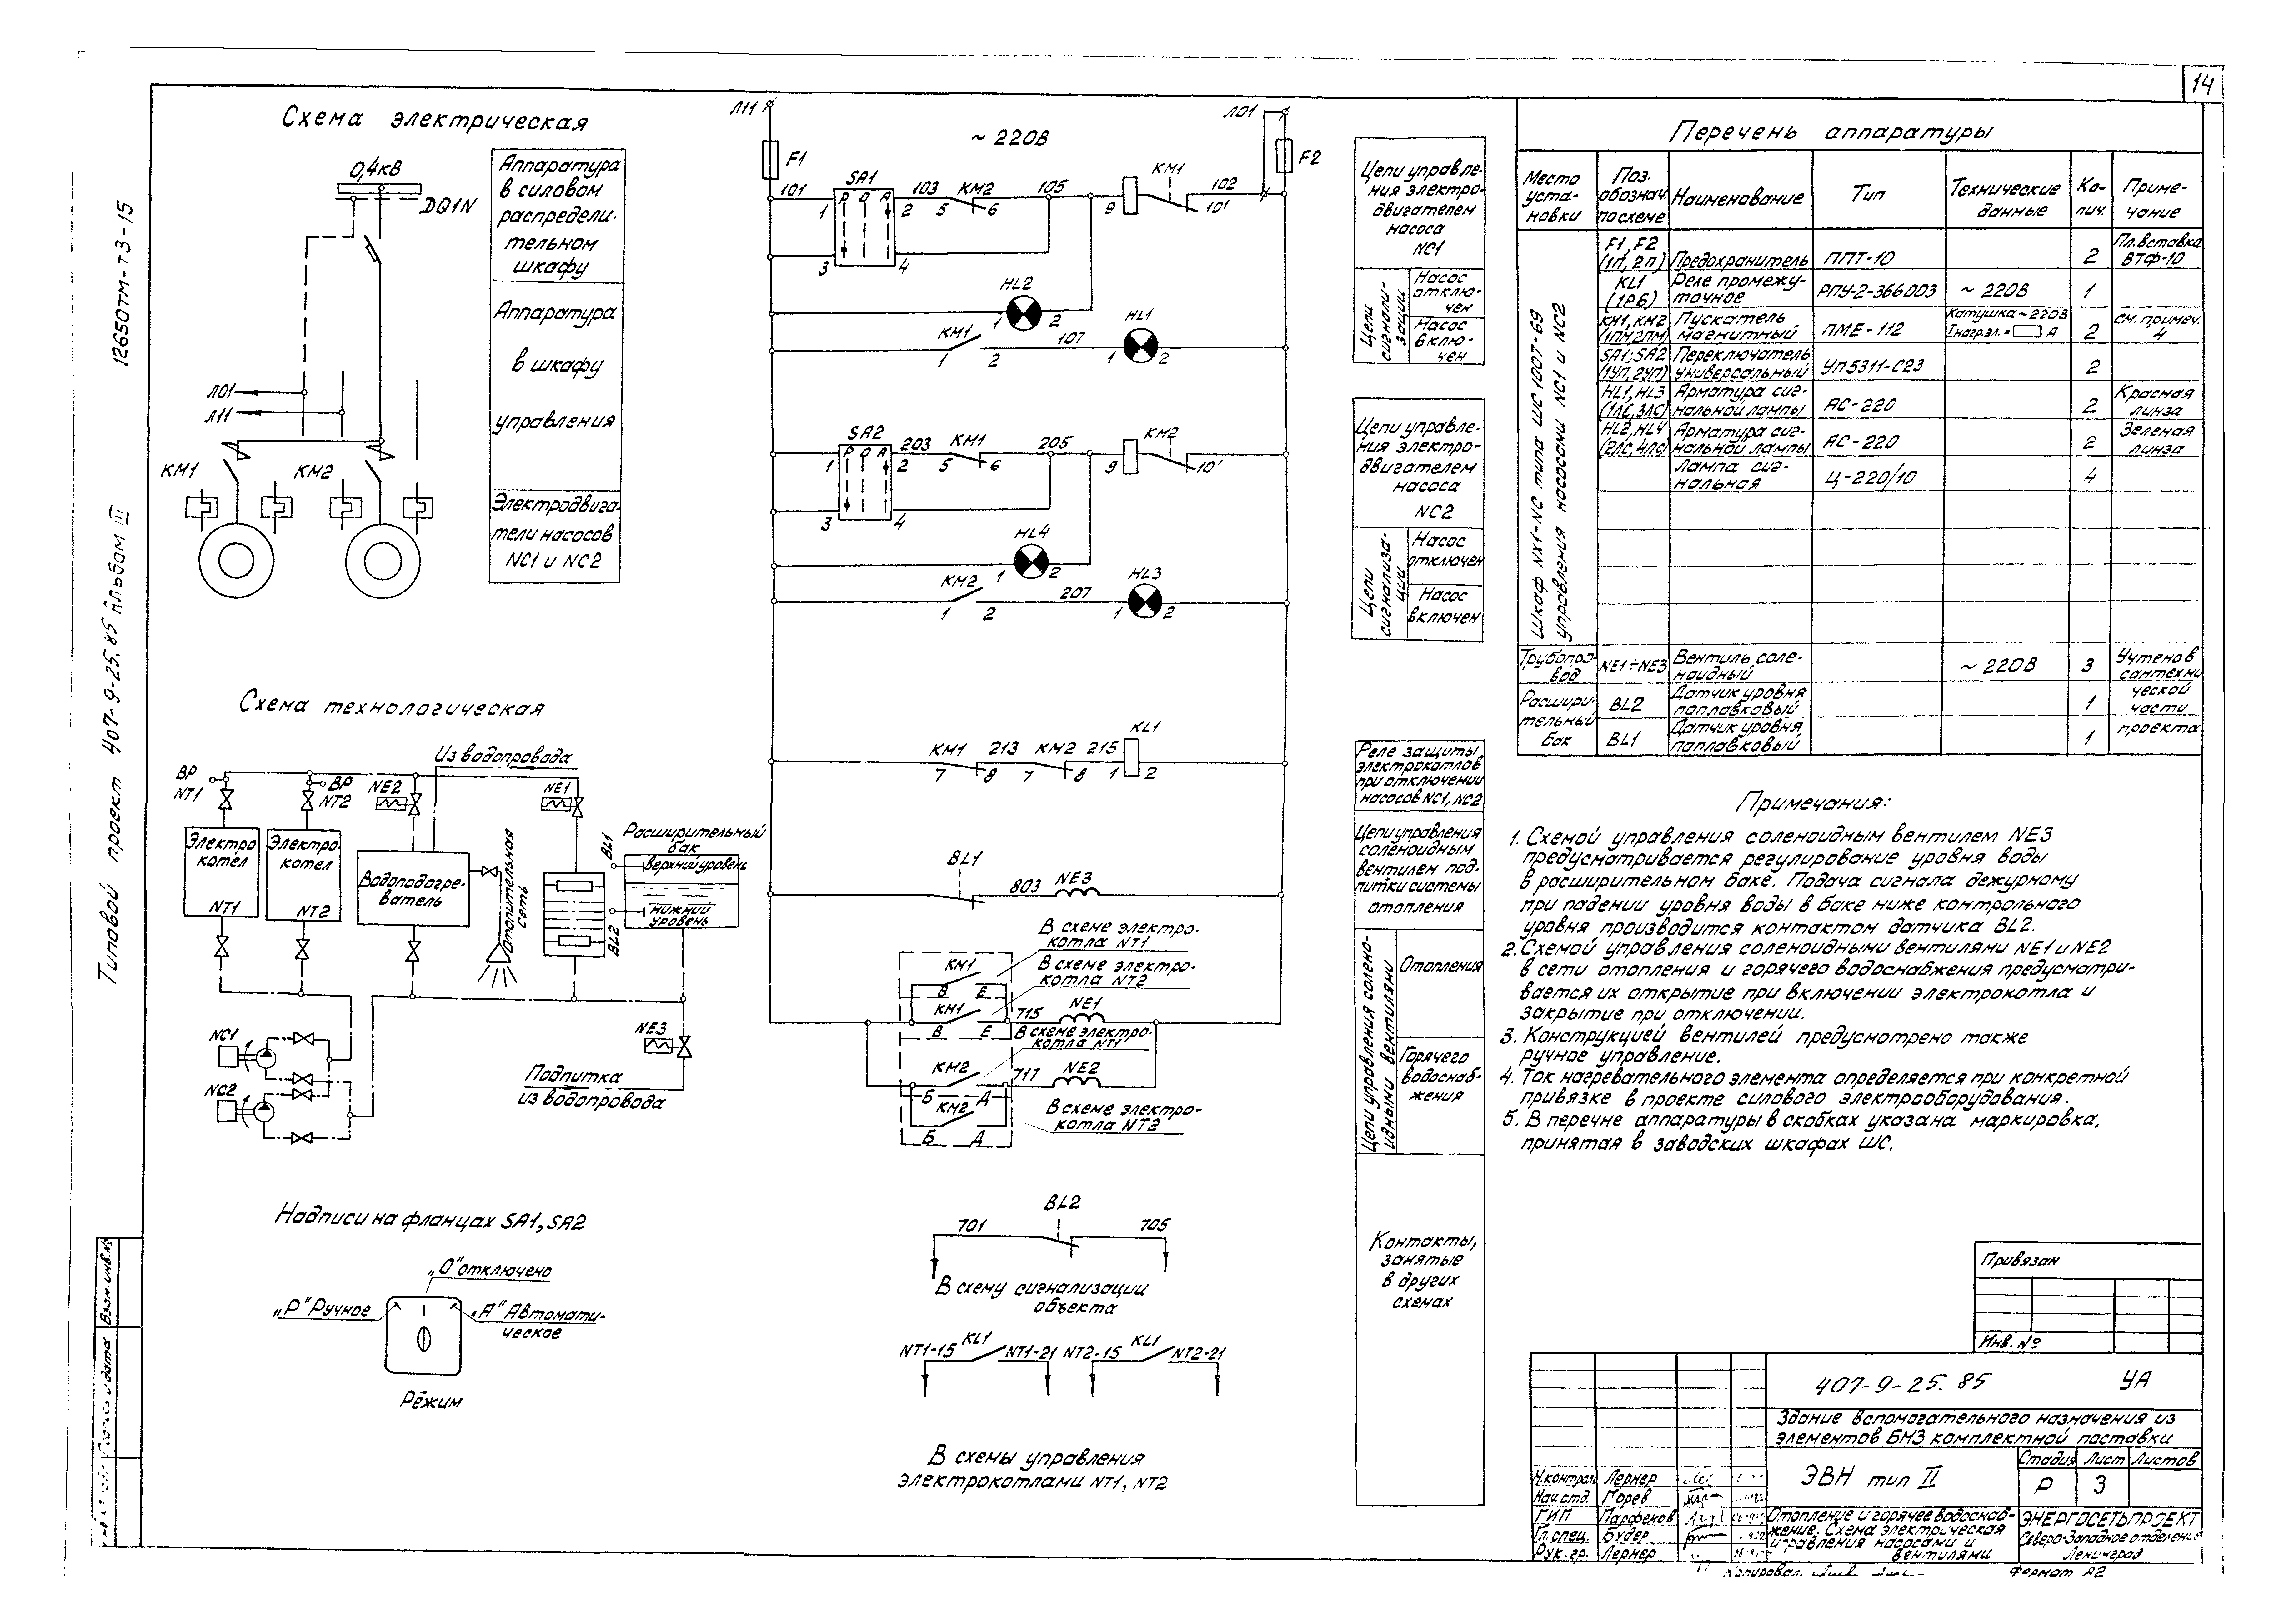 14
12650тм-т3-15
Типовой проект 407-9-25.85 Альбом III
Взам.инв.№
Схема электрическая
0,4кВ
DQ1N
Л01
Л11
КМ1
КМ2
Аппаратура
в силовом
распредели-
тельном
шкафу
Аппаратура
в шкафу
управления
Электродвига-
тели насосов
NC1 и NC2
Схема технологическая
Из водопровода
ВР
NT1
ВР
NT2
NE2
NE1
Электро
котел
NT1
Электро-
котел
NT2
Водоподогре-
ватель
Отопительная
сеть
BL1
BL2
Расширительный
бак
верхний уровень
нижний
уровень
NC1
NC2
NE3
Подпитка
из водопровода
Надписи на фланцах SA1, SA2
„О" отключено
„Р" Ручное
„А" Автомати-
ческое
Режим
Л11
Л01
~ 220В
F1
F2
101
SA1
Р О А
1
2
3
4
103
КМ2
5
6
105
9
КМ1
102
10'
HL2
1
2
КМ1
1
2
107
HL1
1
2
SA2
Р О А
1
2
3
4
203
КМ1
5
6
205
9
КМ2
10'
HL4
1
2
КМ2
1
2
207
HL3
1
2
КМ1
7
8
213
КМ2
7
8
215
KL1
1
2
BL1
803
NE3
В схеме электро-
котла NT1
В схеме электро-
котла NT2
КМ1
В
Е
КМ1
В
Е
715
NE1
В схеме электро-
котла NT1
КМ2
Б
Д
717
NE2
КМ2
Б
Д
В схеме электро-
котла NT2
BL2
701
705
В схему сигнализации
объекта
NT1-15
KL1
NT1-21
NT2-15
KL1
NT2-21
В схемы управления
электрокотлами NT1, NT2
Цепи управле-
ния электро-
двигателем
насоса
NC1
Цепи
сигнали-
зации
Насос
отклю-
чен
Насос
вклю-
чен
Цепи управле-
ния электро-
двигателем
насоса
NC2
Цепи
сигнализа-
ции
Насос
отключен
Насос
включен
Реле защиты
электрокотлов
при отключении
насосов NC1, NC2
Цепи управления
соленоидным
вентилем под-
питки системы
отопления
Цепи управления солено-
идными вентилями
Отопления
Горячего
водоснаб-
жения
Контакты,
занятые
в других
схемах
Перечень аппаратуры
Место
уста-
новки
Поз.
обознач.
по схеме
Наименование
Тип
Технические
данные
Ко-
лич.
Приме-
чание
Шкаф NX1-NC типа ШС 1007-69
управления насосами NC1 и NC2
F1, F2
(1П, 2П)
Предохранитель
ППТ-10
2
Пл.вставка
ВТФ-10
KL1
(1РБ)
Реле промежу-
точное
РПУ-2-36603
~ 220В
1
КМ1, КМ2
(1ПМ,2ПМ)
Пускатель
магнитный
ПМЕ-112
Катушка ~220В
Iнагр.эл.= А
2
см. примеч.
4
SA1; SA2
(1УП, 2УП)
Переключатель
универсальный
УП5311-С23
2
HL1, HL3
(1ЛС, 3ЛС)
Арматура сиг-
нальной лампы
АС-220
2
Красная
линза
HL2, HL4
(2ЛС, 4ЛС)
Арматура сиг-
нальной лампы
АС-220
2
Зеленая
линза
Лампа сиг-
нальная
Ц-220/10
4
Трубопро-
вод
NE1÷NE3
Вентиль соле-
ноидный
~ 220В
3
Учтено в
сантехни
ческой
части
проекта
Расшири-
тельный
бак
BL2
Датчик уровня
поплавковый
1
BL1
Датчик уровня
поплавковый
1
Примечания:
1. Схемой управления соленоидным вентилем NE3
предусматривается регулирование уровня воды
в расширительном баке. Подача сигнала дежурному
при падении уровня воды в баке ниже контрольного
уровня производится контактом датчика BL2.
2. Схемой управления соленоидными вентилями NE1 и NE2
в сети отопления и горячего водоснабжения предусматри-
вается их открытие при включении электрокотла и
закрытие при отключении.
3. Конструкцией вентилей предусмотрено также
ручное управление.
4. Ток нагревательного элемента определяется при конкретной
привязке в проекте силового электрооборудования.
5. В перечне аппаратуры в скобках указана маркировка,
принятая в заводских шкафах ШС.
Привязан
Инв. №
407-9-25.85 УА
Здание вспомогательного назначения из
элементов БМЗ комплектной поставки
ЭВН тип II
Стадия Лист Листов
Р 3
Н.контроль Лернер
Нач.отд. Горев
ГИП Парфенов
Гл.спец. Будер
Рук.гр. Лернер
Отопление и горячее водоснаб-
жение. Схема электрическая
управления насосами и
вентилями
ЭНЕРГОСЕТЬПРОЕКТ
Северо-Западное отделение
Ленинград
Копировал.
Формат А2